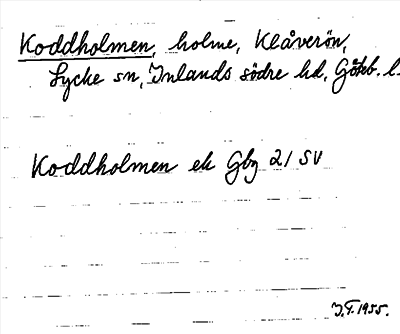 Koddholmen, holme, Klåverön,
Lycke sn, Inlands södre hd, Göteb. l.
Koddholmen ek Gbg 21 SV
J.F. 1955.